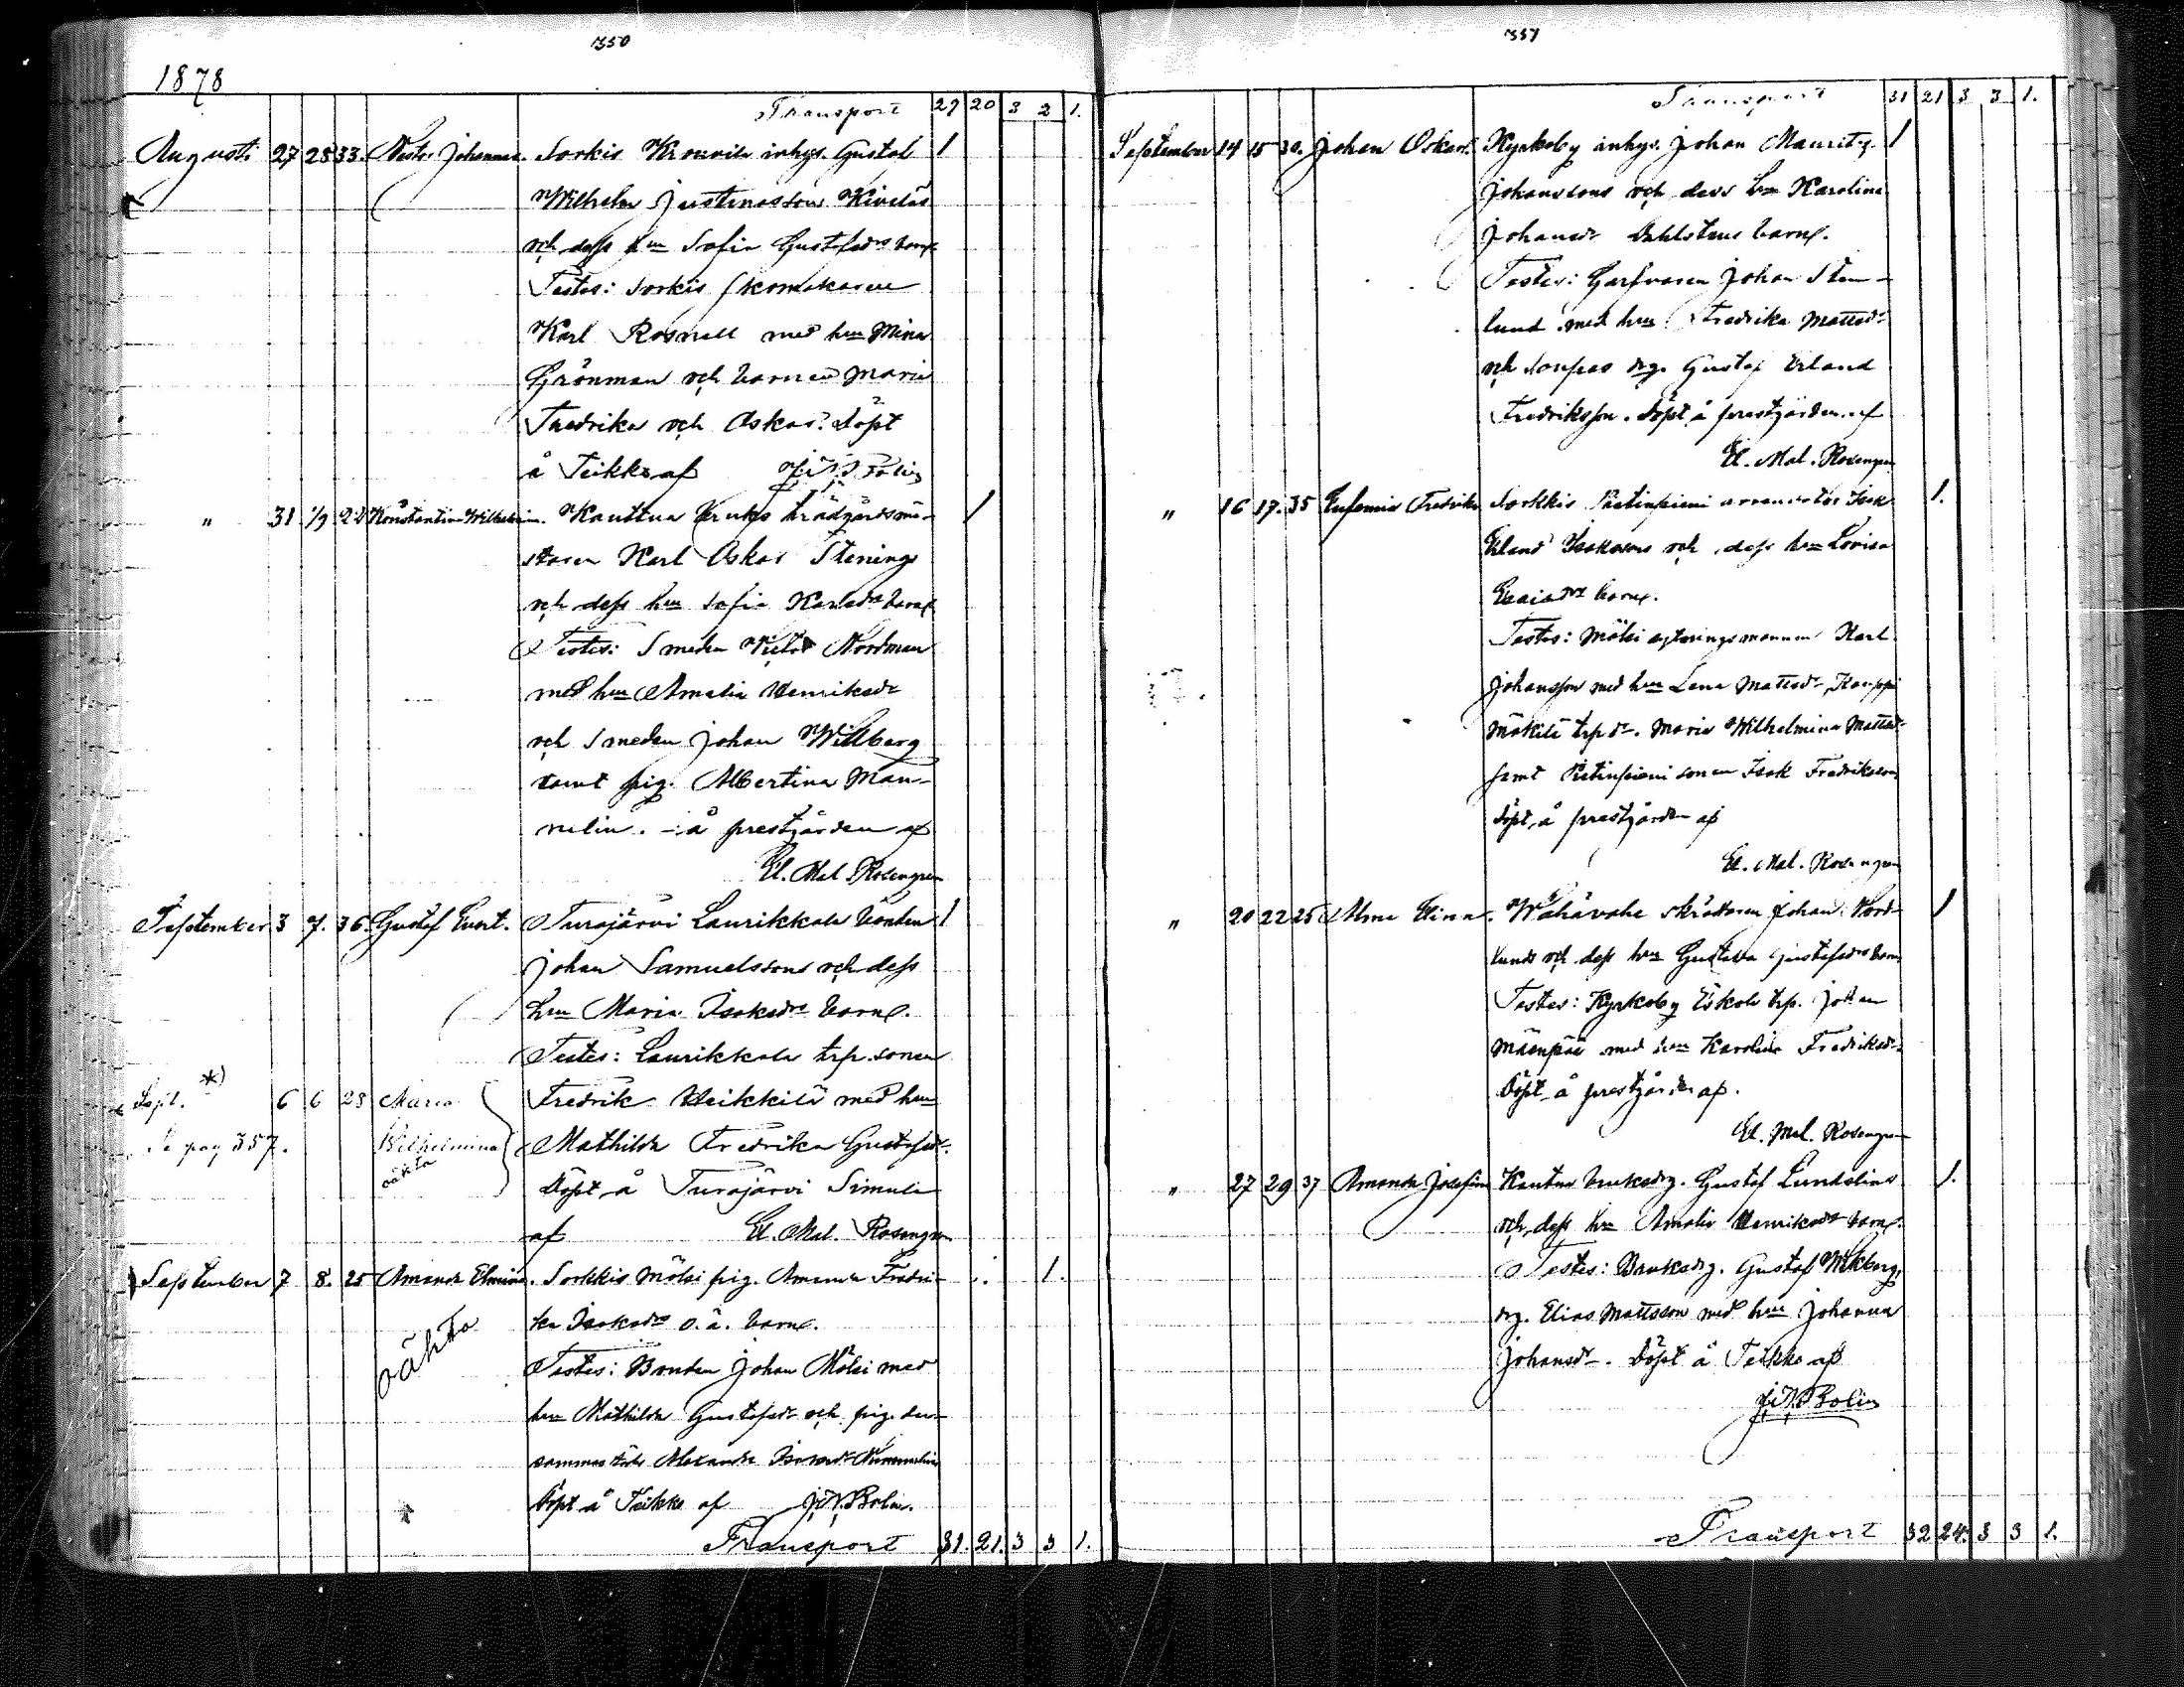 350
1878
Transport 29 20 3 2 1.
Augusti 27 28 33. Nestor Johannes. Sorkis Krouvila inhys. Gustaf 1
Wilhelm Justinassons Kiviläs
och dess hu Sofia Gustafsdrs barn
Testes: Sorkis skomakaren
Karl Rosnell med hu Mina
Grönman och barnen Maria
Fredrika och Oskar. Döpt
å Teikko af J. N. Bolin
" 31 1/9 28 Konstantin Wilhelm. Kauttua bruks trädgårdsmä- 1
staren Karl Oskar Stenings
och dess hu Sofia Karlsdrs barn
Testes: Smeden Viktor Nordman
med hu Amalia Henriksdr
och Smeden Johan Willberg
samt pig. Albertina Man-
nelin. - å prestgården af
El. Mal. Rosengren
September 3 7. 36. Gustaf Evert. Turajärvi Laurikkala bonden 1
Johan Samuelssons och dess
hu Maria Isaksdrs barn.
Testes: Laurikkala trp. sonen
Sept. *) 6 6 28 Maria Fredrik Heikkilä med hu
Se pag 357. Wilhelmina Mathilda Fredrika Gustafsdr.
oäkta Döpt å Turajärvi Simula
af El. Mal. Rosengren
September 7 8. 25 Amanda Elmina. Sorkkis Mölsi pig. Amanda Fredri- 1.
ka Isaksdrs o.ä. barn.
oäkta Testes: Bonden Johan Mölsi med
hu Mathilda Gustafsdr och pig. der-
sammastäds Alexandra Nummelin
Döpt å Teikko af J. N. Bolin.
Transport 31. 21. 3 3 1.
351
Transport 31 21 3 3 1.
September 14 15 30. Johan Oskar. Kyrkoby inhys. Johan Mauritz 1
Johanssons och dess hu Karolina
Johansdr Dahlstens barn.
Testes: Garfvaren Johan Sten-
lund med hu Fredrika Mattsdr
och drg. Gustaf Erland
Fredriksson. Döpt å prestgården af
El. Mal. Rosengren
" 16 17. 35 Eufemia Fredrika Sorkkis Pietinpieni arrendator Isak 1.
Erland Isakssons och dess hu Lovisa
Esaiasdrs barn.
Testes: Mölsi Karl
Johansson med hu Lena Mattsdr, Kauppi
Mäkilä trp dr. Maria Wilhelmina Mattsdr
samt Pietinpieni sonen Isak Fredriksson
döpt å prestgården af
El. Mal. Rosengren
" 20 22 25 Alma Elina. Wähävahe skräddaren Johan Nord- 1
lunds och dess hu Gustava Gustafsdrs barn
Testes: Kyrkoby Eskola trp. Johan
Mäenpää med hu Karolina Fredriksdr.
Döpt å prestgården af.
El. Mal. Rosengren
" 27 29 37 Amanda Josefina Kauttua bruksdrg. Gustaf Lundelins 1.
och dess hu Amalia Henriksdrs barn.
Testes: Bruksdrg. Gustaf Wikberg,
drg. Elias Mattsson med hu Johanna
Johansdr. Döpt å Teikko af
J. N. Bolin
Transport 32 24. 3 3 1.